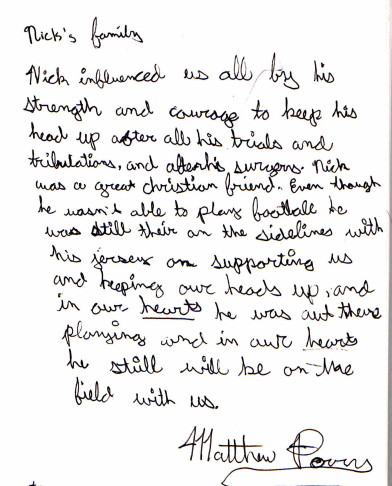 Nick's family
Nick influenced us all by his
strength and courage to keep his
head up after all his trials and
tribulations, and after his surgery. Nick
was a great christian friend. Even though
he wasn't able to play football he
was still their on the sidelines with
his jersey on supporting us
and keeping our heads up, and
in our hearts he was out there
playing and in our hearts
he still will be on the
field with us.
Matthew